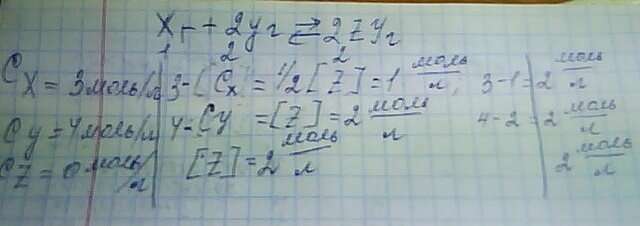 Xг + 2yг ⇄ 2ZYг
1 2 2
Cx = 3 моль/л 3-[Cx = 1/2 [Z] = 1 моль/л; 3-1=2 моль/л
Cy = 4 моль/л 4-Cy = [Z] = 2 моль/л 4-2=2 моль/л
CZ = 0 моль/л [Z] = 2 моль/л 2 моль/л